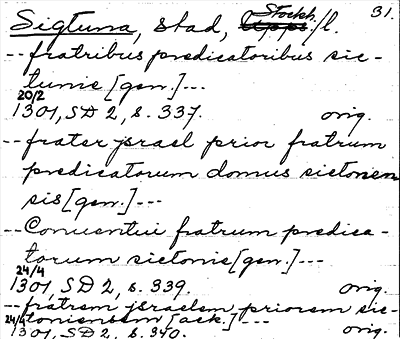 Sigtuna, stad, Stockh. /l. 31.
-- fratribus predicatoribus sic-
tunie [gen.] ---
20/2
1301, SD 2, s. 337. orig.
-- frater jsrael prior fratrum
predicatorum domus sictonien
sis [gen.] ---
-- Conuentui fratrum predica-
torum sictonie [gen.] ---
24/4
1301, SD 2, s. 339. orig.
-- fratrem jsraelem priorem sic-
toniensem [ack.] ---
24/4
1301, SD 2, s. 340. orig.